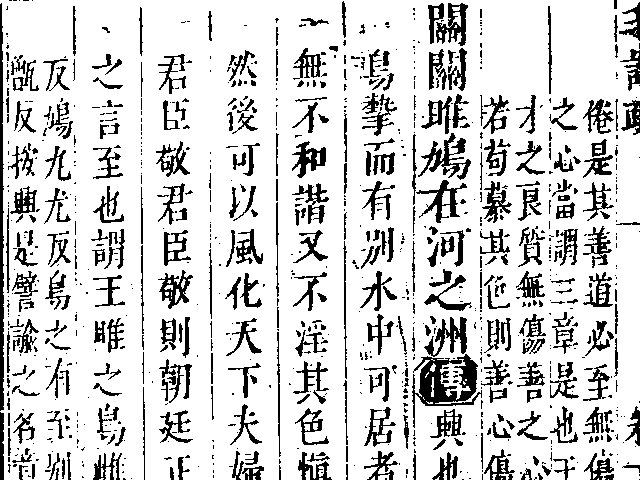 倦是其善道必至無傷
之心當謂三章是也王
才之良質無傷善之心
若苟慕其色則善心傷
關關雎鳩在河之洲傳興也
鳥摯而有別水中可居者
無不和諧又不淫其色慎
然後可以風化天下夫婦
君臣敬君臣敬則朝廷正
之言至也謂王雎之鳥雌
反鳩九尤反鳥之有至別
反拨興是譬諭之名意